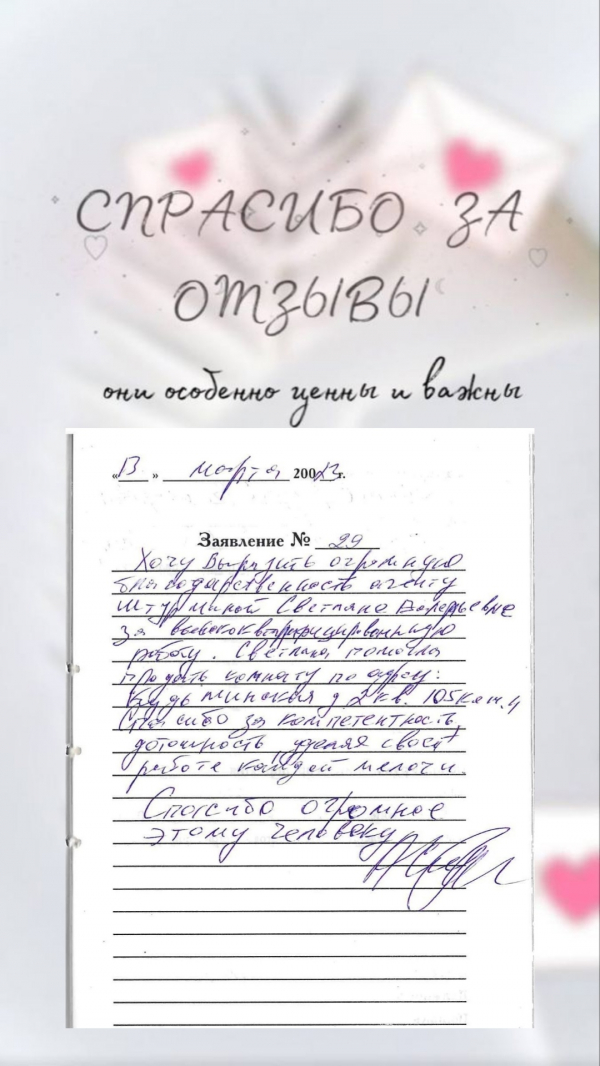 СПРАСИБО ЗА
ОТЗЫВЫ
они особенно ценны и важны
«13» марта 20023г.
Заявление № 29
Хочу выразить огромную
благодарственность агенту
Светлане Валерьевне
за высококвалифицированную
работу. Светлана помогла
продать комнату по адресу:
Минская д 2 кв. 105 ком. 4
Спасибо за компетентность,
уделяя своей
работе каждой мелочи.
Спасибо огромное
этому человеку